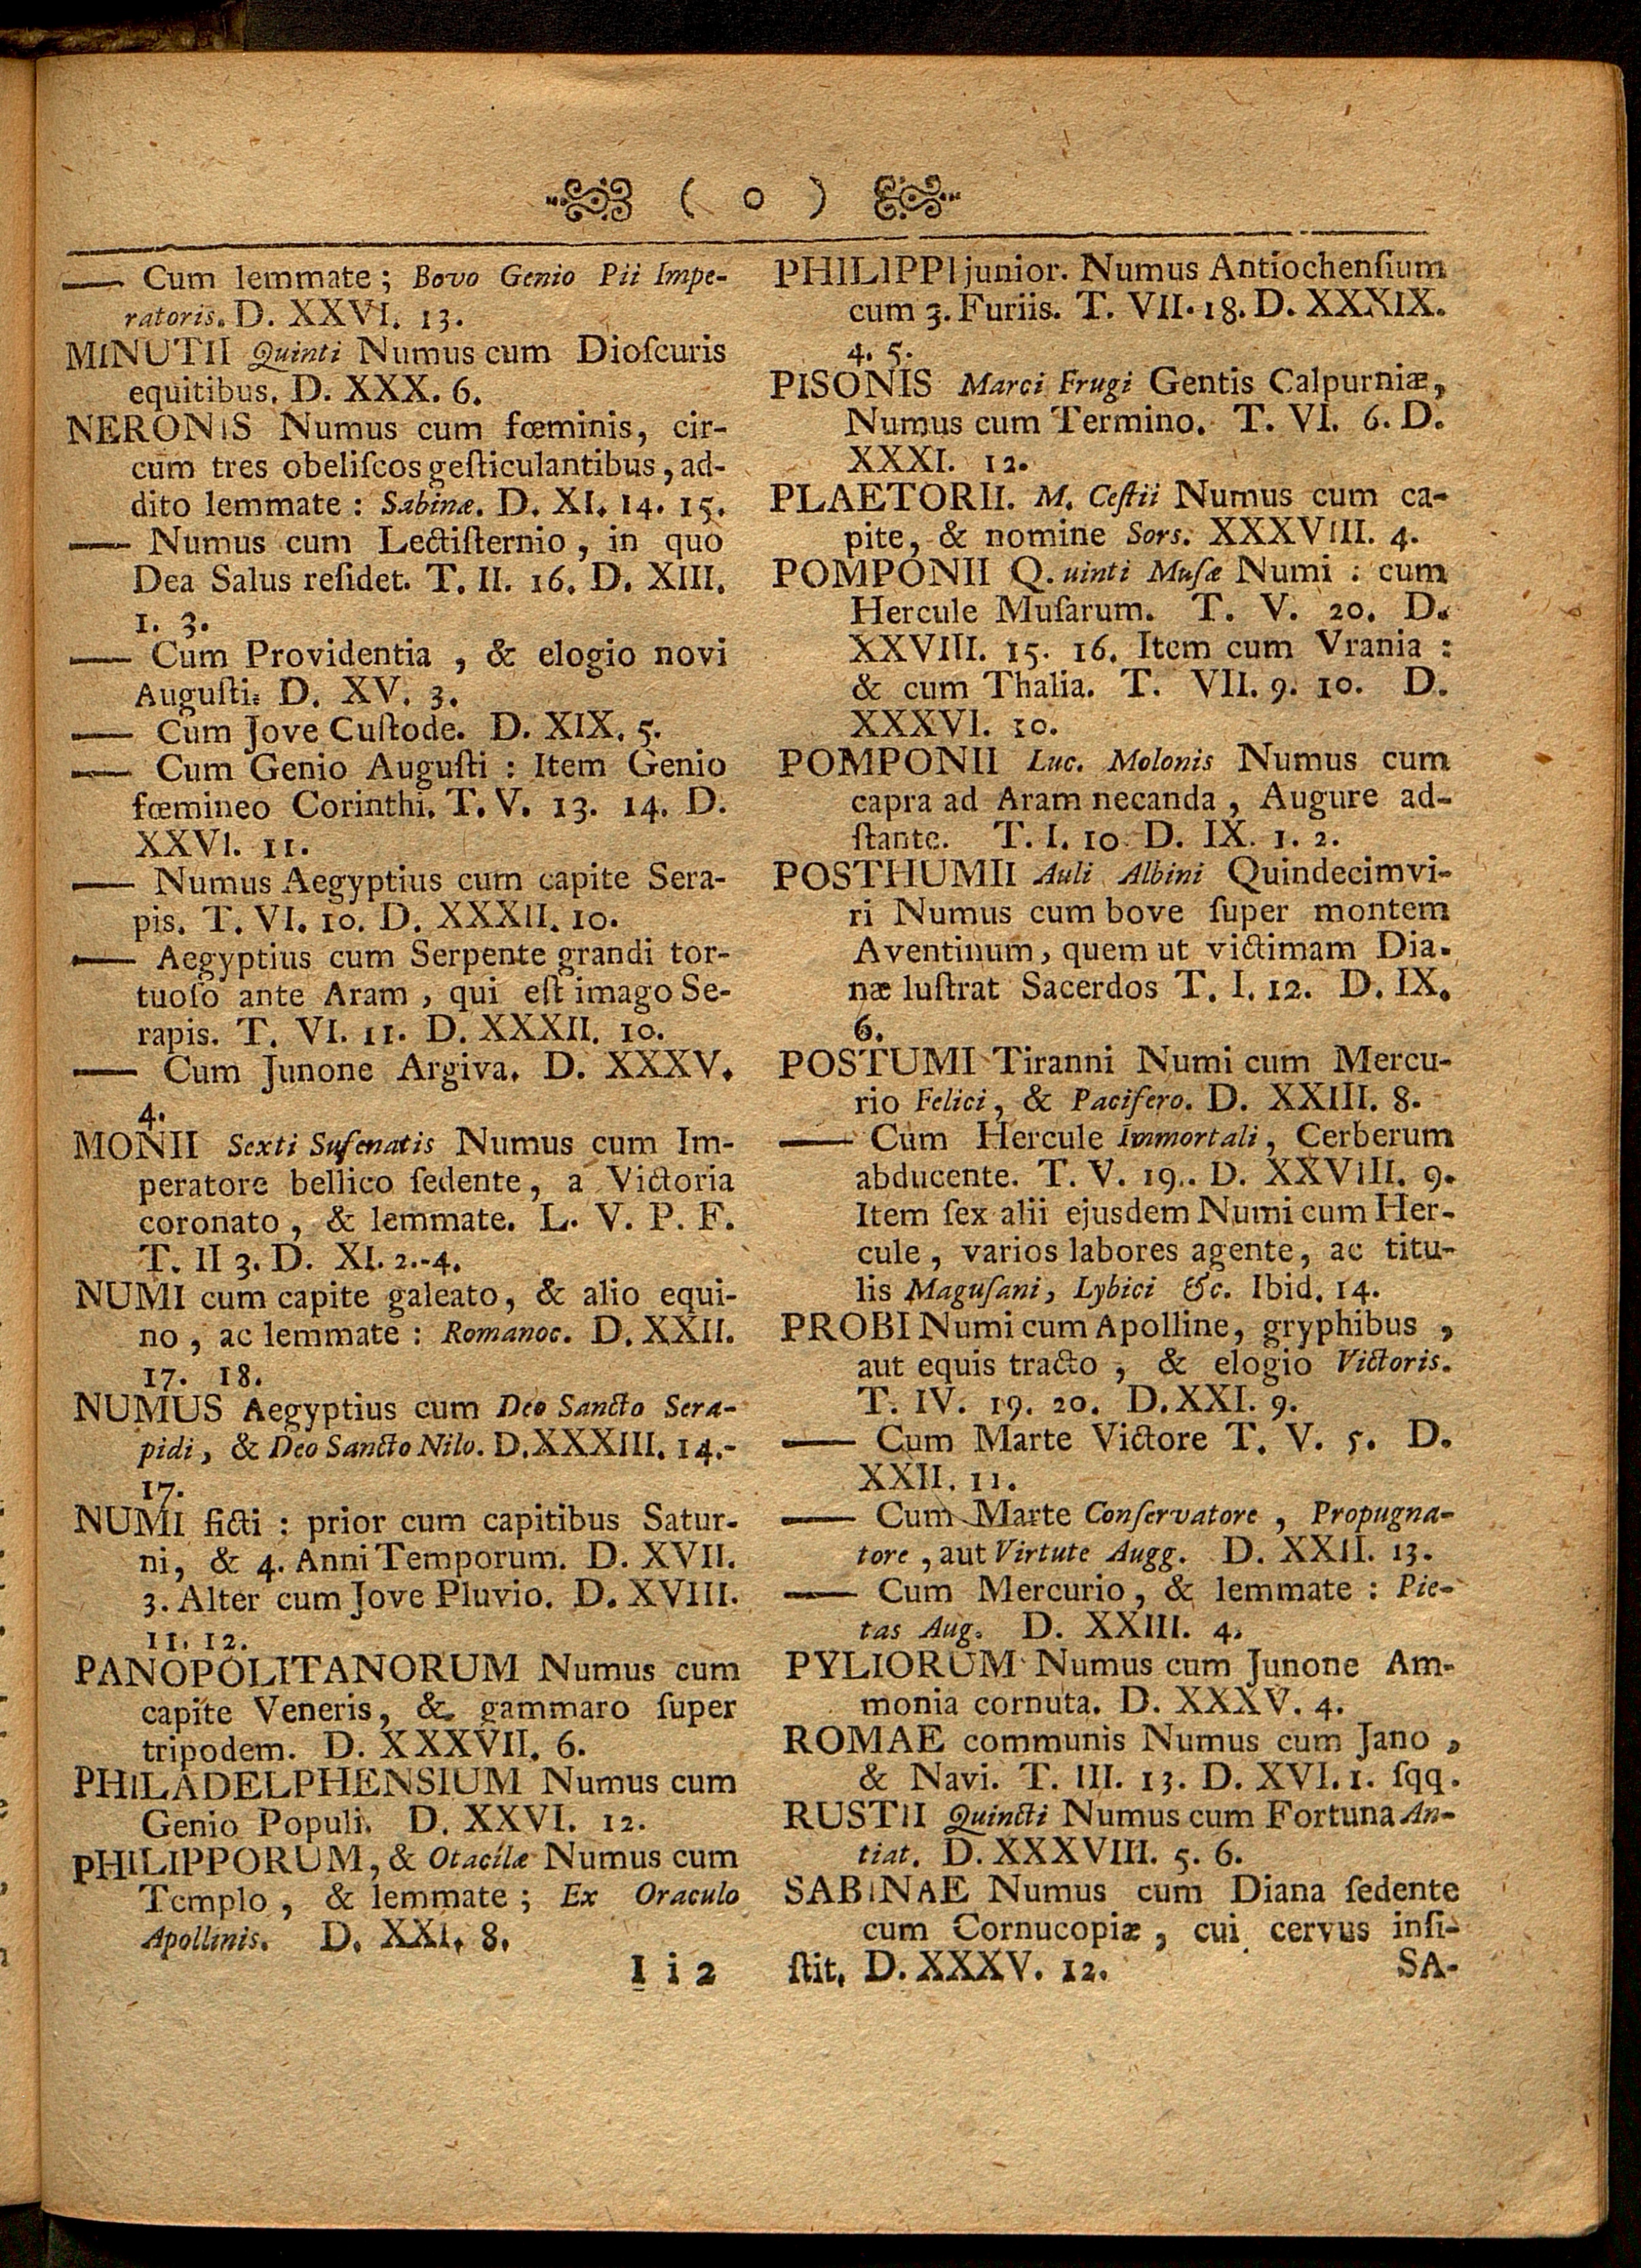 ( o )
—— Cum lemmate; Bovo Genio Pii Impe-
ratoris. D. XXVI. 13.
MINUTII Quinti Numus cum Dioſcuris
equitibus. D. XXX. 6.
NERONIS Numus cum fœminis, cir-
cum tres obeliſcos geſticulantibus, ad-
dito lemmate: Sabinæ. D. XI. 14. 15.
—— Numus cum Lectiſternio, in quo
Dea Salus reſidet. T. II. 16. D. XIII.
1. 3.
—— Cum Providentia, & elogio novi
Auguſti. D. XV. 3.
—— Cum Jove Cuſtode. D. XIX. 5.
—— Cum Genio Auguſti: Item Genio
fœmineo Corinthi. T. V. 13. 14. D.
XXVI. 11.
—— Numus Aegyptius cum capite Sera-
pis. T. VI. 10. D. XXXII. 10.
—— Aegyptius cum Serpente grandi tor-
tuoſo ante Aram, qui eſt imago Se-
rapis. T. VI. 11. D. XXXII. 10.
—— Cum Junone Argiva. D. XXXV.
4.
MONII Sexti Suſenatis Numus cum Im-
peratore bellico ſedente, a Victoria
coronato, & lemmate. L. V. P. F.
T. II 3. D. XI. 2.-4.
NUMI cum capite galeato, & alio equi-
no, ac lemmate: Romanoc. D. XXII.
17. 18.
NUMUS Aegyptius cum Deo Sancto Sera-
pidi, & Deo Sancto Nilo. D. XXXIII. 14.-
17.
NUMI ficti: prior cum capitibus Satur-
ni, & 4. Anni Temporum. D. XVII.
3. Alter cum Jove Pluvio. D. XVIII.
11. 12.
PANOPOLITANORUM Numus cum
capite Veneris, & gammaro ſuper
tripodem. D. XXXVII. 6.
PHILADELPHENSIUM Numus cum
Genio Populi. D. XXVI. 12.
PHILIPPORUM, & Otacilæ Numus cum
Templo, & lemmate; Ex Oraculo
Apollinis. D. XXI. 8.
I i 2
PHILIPPI junior. Numus Antiochenſium
cum 3. Furiis. T. VII. 18. D. XXXIX.
4. 5.
PISONIS Marci Frugi Gentis Calpurniæ,
Numus cum Termino. T. VI. 6. D.
XXXI. 12.
PLAETORII. M. Ceſtii Numus cum ca-
pite, & nomine Sors. XXXVIII. 4.
POMPONII Q. uinti Muſæ Numi: cum
Hercule Muſarum. T. V. 20. D.
XXVIII. 15. 16. Item cum Vrania:
& cum Thalia. T. VII. 9. 10. D.
XXXVI. 10.
POMPONII Luc. Molonis Numus cum
capra ad Aram necanda, Augure ad-
ſtante. T. I. 10. D. IX. 1. 2.
POSTHUMII Auli Albini Quindecimvi-
ri Numus cum bove ſuper montem
Aventinum, quem ut victimam Dia-
næ luſtrat Sacerdos T. I. 12. D. IX.
6.
POSTUMI Tiranni Numi cum Mercu-
rio Felici, & Pacifero. D. XXIII. 8.
—— Cum Hercule Immortali, Cerberum
abducente. T. V. 19.. D. XXVIII. 9.
Item ſex alii ejusdem Numi cum Her-
cule, varios labores agente, ac titu-
lis Maguſani, Lybici &c. Ibid. 14.
PROBI Numi cum Apolline, gryphibus,
aut equis tracto, & elogio Victoris.
T. IV. 19. 20. D. XXI. 9.
—— Cum Marte Victore T. V. 5. D.
XXII. 11.
—— Cum Marte Conſervatore, Propugna-
tore, aut Virtute Augg. D. XXII. 13.
—— Cum Mercurio, & lemmate: Pie-
tas Aug. D. XXIII. 4.
PYLIORUM Numus cum Junone Am-
monia cornuta. D. XXXV. 4.
ROMAE communis Numus cum Jano,
& Navi. T. III. 13. D. XVI. 1. ſqq.
RUSTII Quincti Numus cum Fortuna An-
tiat. D. XXXVIII. 5. 6.
SABINAE Numus cum Diana ſedente
cum Cornucopiæ, cui cervus inſi-
ſtit. D. XXXV. 12.
SA-